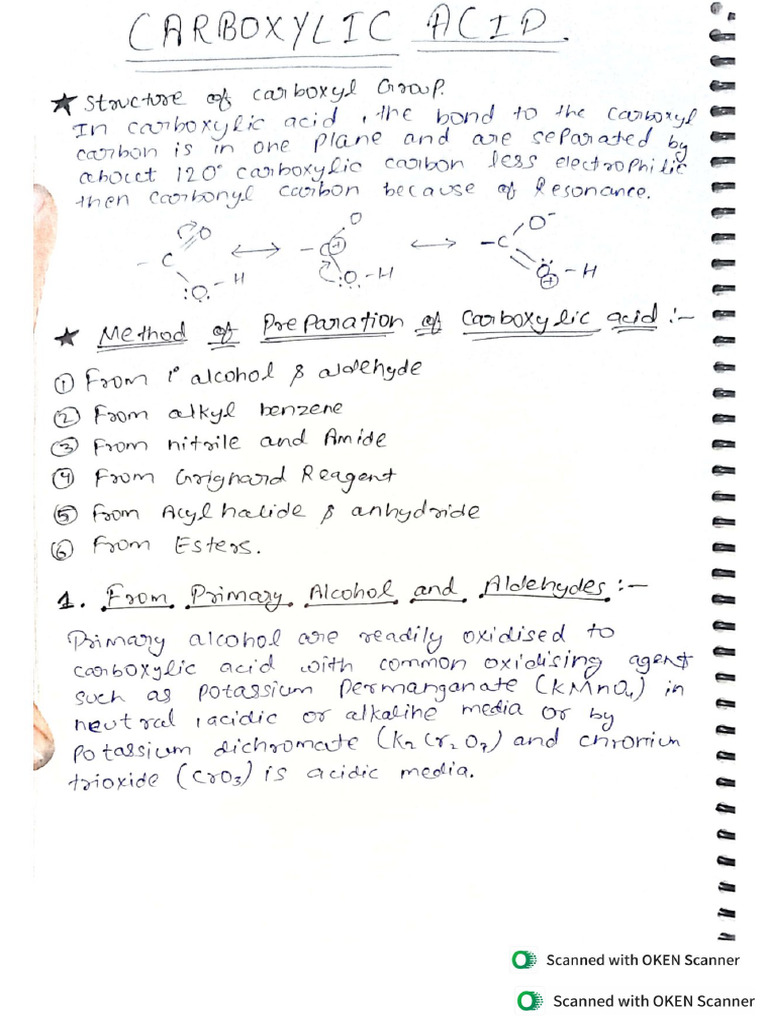 CARBOXYLIC ACID.
★ Structure of carboxyl Group.
In carboxylic acid, the bond to the carboxyl
carbon is in one plane and are separated by
about 120° carboxylic carbon less electrophilic
then carbonyl carbon because of Resonance.
O O O⁻
-C ⟷ -C⊕ ⟷ -C
:O-H :O-H O-H
⊕
★ Method of Preparation of Carboxylic acid :-
① From 1° alcohol & aldehyde
② From alkyl benzene
③ From nitrile and Amide
④ From Grignard Reagent
⑤ From Acyl halide & anhydride
⑥ From Esters.
1. From Primary Alcohol and Aldehydes :-
Primary alcohol are readily oxidised to
carboxylic acid with common oxidising agent
such as Potassium Permanganate (KMnO₄) in
neutral, acidic or alkaline media or by
Potassium dichromate (K₂Cr₂O₇) and chromium
trioxide (CrO₃) is acidic media.
Scanned with OKEN Scanner
Scanned with OKEN Scanner